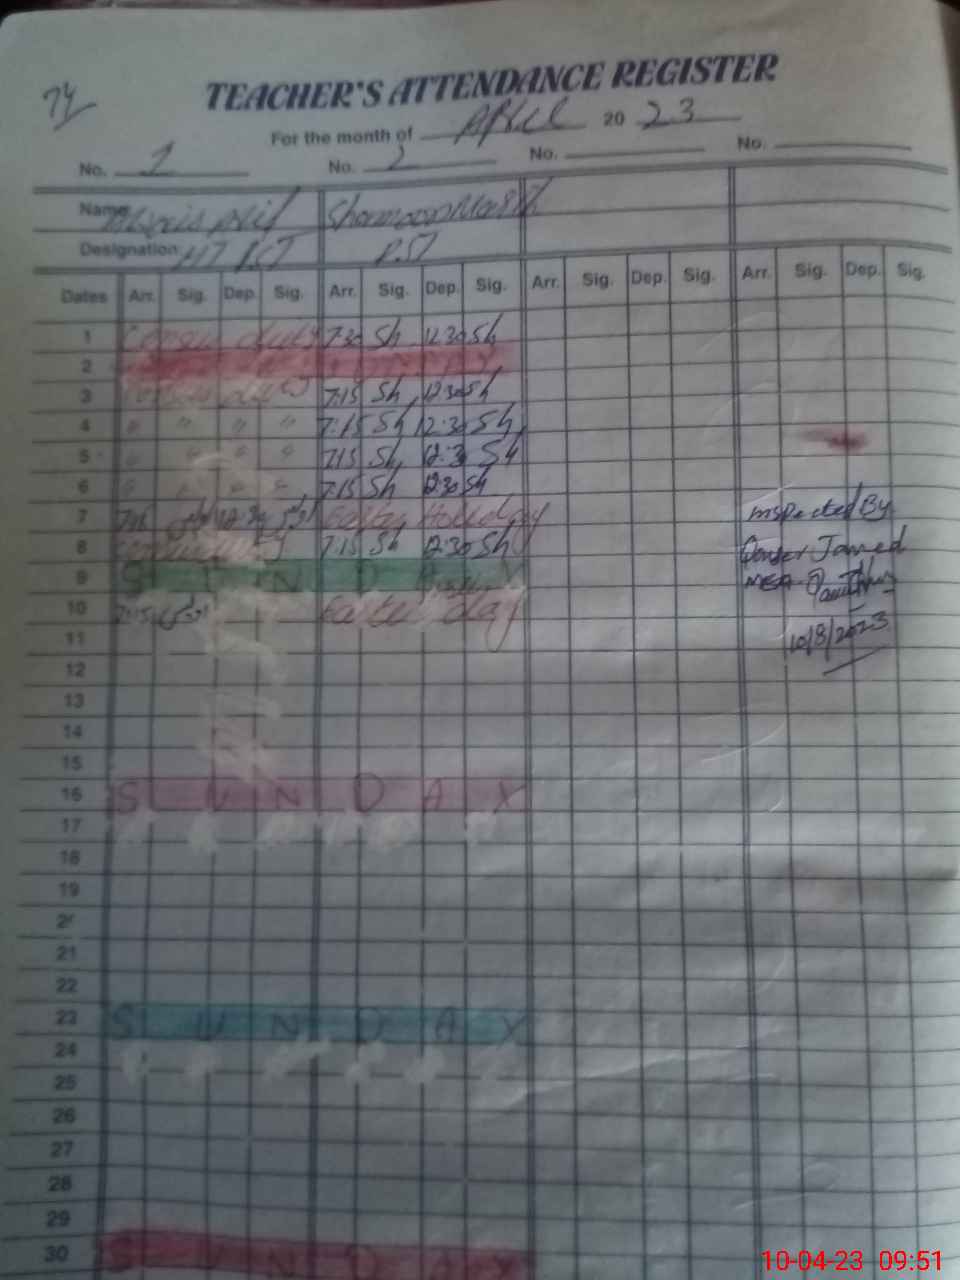 74
TEACHER'S ATTENDANCE REGISTER
For the month of April 20 23
No. 1 No. 2 No. No.
Name
Designation PST
Dates Arr. Sig. Dep. Sig. Arr. Sig. Dep. Sig. Arr. Sig. Dep. Sig. Arr. Sig. Dep. Sig.
1 duty 7:30 Sh 12:30 Sh
2
3 duty 7:15 Sh 12:30 Sh
4 " " " " 7:15 Sh 12:30 Sh
5 " " " " 7:15 Sh 12:30 Sh
6 " " " " 7:15 Sh 12:30 Sh
7 Easter Holiday Inspected By
8 duty 7:15 Sh 12:30 Sh Jamed
9 S U N D A Y MEA
10 7:15 Easter day
11 10/8/2023
12
13
14
15
16 S U N D A Y
17
18
19
20
21
22
23 S U N D A Y
24
25
26
27
28
29
30 S U N D A Y
10-04-23 09:51